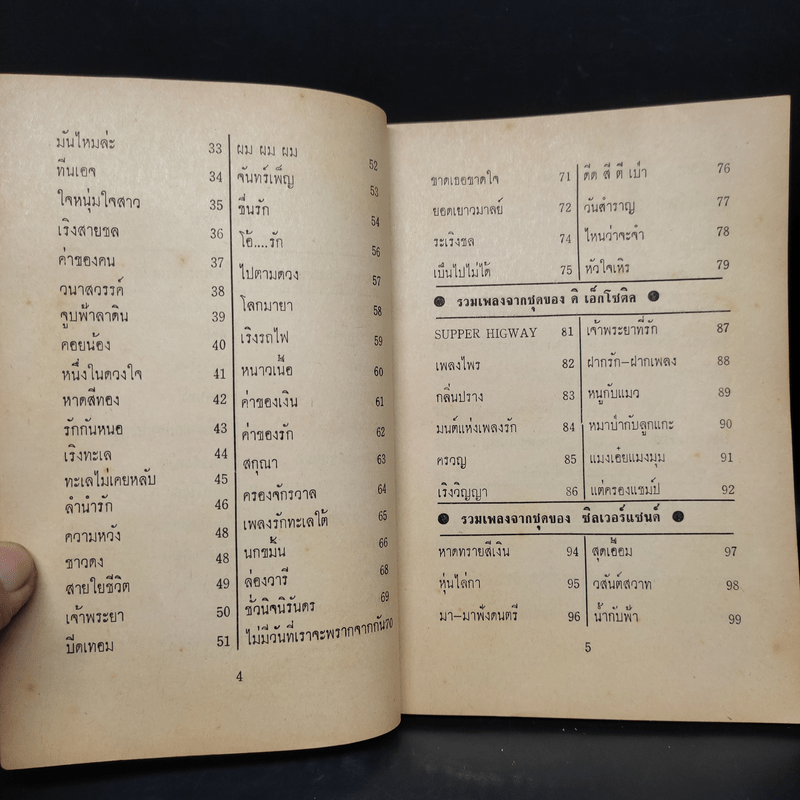 มันไหมล่ะ 33
ทีนเอจ 34
ใจหนุ่มใจสาว 35
เริงสายชล 36
ค่าของคน 37
วนาสวรรค์ 38
จูบฟ้าลาดิน 39
คอยน้อง 40
หนึ่งในดวงใจ 41
หาดสีทอง 42
รักกันหนอ 43
เริงทะเล 44
ทะเลไม่เคยหลับ 45
ลำนำรัก 46
ความหวัง 48
ชาวดง 48
สายใยชีวิต 49
เจ้าพระยา 50
ปิดเทอม 51
ผม ผม ผม 52
จันทร์เพ็ญ 53
ชื่นรัก 54
โอ้....รัก 56
ไปตามดวง 57
โลกมายา 58
เริงรถไฟ 59
หนาวเนื้อ 60
ค่าของเงิน 61
ค่าของรัก 62
สกุณา 63
ครองจักรวาล 64
เพลงรักทะเลใต้ 65
นกขมิ้น 66
ล่องวารี 68
ชั่วนิจนิรันดร 69
ไม่มีวันที่เราจะพรากจากกัน 70
4
ขาดเธอขาดใจ 71
ยอดเยาวมาลย์ 72
ระเริงชล 74
เป็นไปไม่ได้ 75
ดีด สี ตี เป่า 76
วันสำราญ 77
ไหนว่าจะจำ 78
หัวใจเหิร 79
รวมเพลงจากชุดของ ดิ เอ็กโซติค
SUPPER HIGWAY 81
เพลงไพร 82
กลิ่นปราง 83
มนต์แห่งเพลงรัก 84
ครวญ 85
เริงวิญญา 86
เจ้าพระยาที่รัก 87
ฝากรัก-ฝากเพลง 88
หนูกับแมว 89
หมาป่ากับลูกแกะ 90
แมงเอ๋ยแมงมุม 91
แด่ครองแชมป์ 92
รวมเพลงจากชุดของ ซิลเวอร์แซนด์
หาดทรายสีเงิน 94
หุ่นไล่กา 95
มา-มาฟังดนตรี 96
สุดเอื้อม 97
วสันต์สวาท 98
น้ำกับฟ้า 99
5